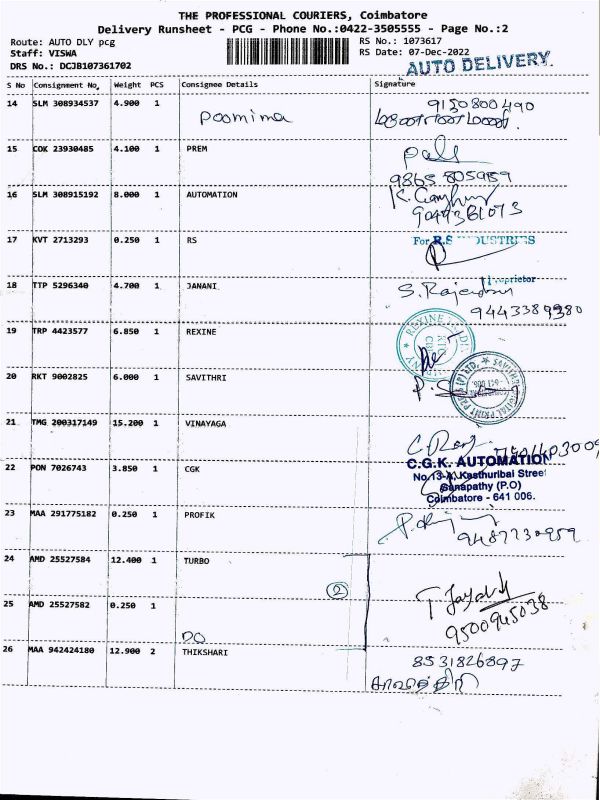 THE PROFESSIONAL COURIERS, Coimbatore
Delivery Runsheet - PCG - Phone No.:0422-3505555 - Page No.:2
Route: AUTO DLY pcg
RS No.: 1073617
Staff: VISWA
RS Date: 07-Dec-2022
DRS No.: DCJB107361702
AUTO DELIVERY
S No Consignment No, Weight PCS Consignee Details Signature
14 SLM 308934537 4.900 1 Poornima 9150800490
15 COK 23930485 4.100 1 PREM
9865805989
16 SLM 308915192 8.000 1 AUTOMATION
9044361073
17 KVT 2713293 0.250 1 RS
For R.S
18 TTP 5296340 4.700 1 JANANI
Proprietor
9443389980
19 TRP 4423577 6.850 1 REXINE
20 RKT 9002825 6.000 1 SAVITHRI
21 TMG 200317149 15.200 1 VINAYAGA
22 PON 7026743 3.850 1 CGK
C.G.K. AUTOMATION
No.13-A, Kasthuribai Street
Ganapathy (P.O)
Coimbatore - 641 006.
23 MAA 291775182 0.250 1 PROFIK
24 AMD 25527584 12.400 1 TURBO
2
25 AMD 25527582 0.250 1
9500945038
DO
26 MAA 942424180 12.900 2 THIKSHARI 8531826897